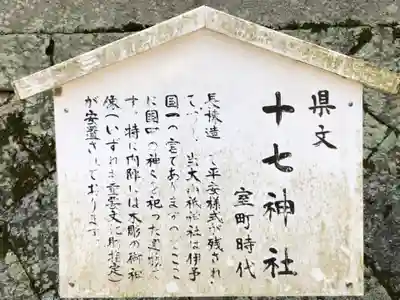 県文
十七神社
室町時代
長棟造 て平安様式が残され
当大山祇神社は伊予
国一の宮であります ここ
に国中の神々を祀った建物
す。特に内陣には木彫の御神
像(いずれも重要文化財指定)
が安置されております。